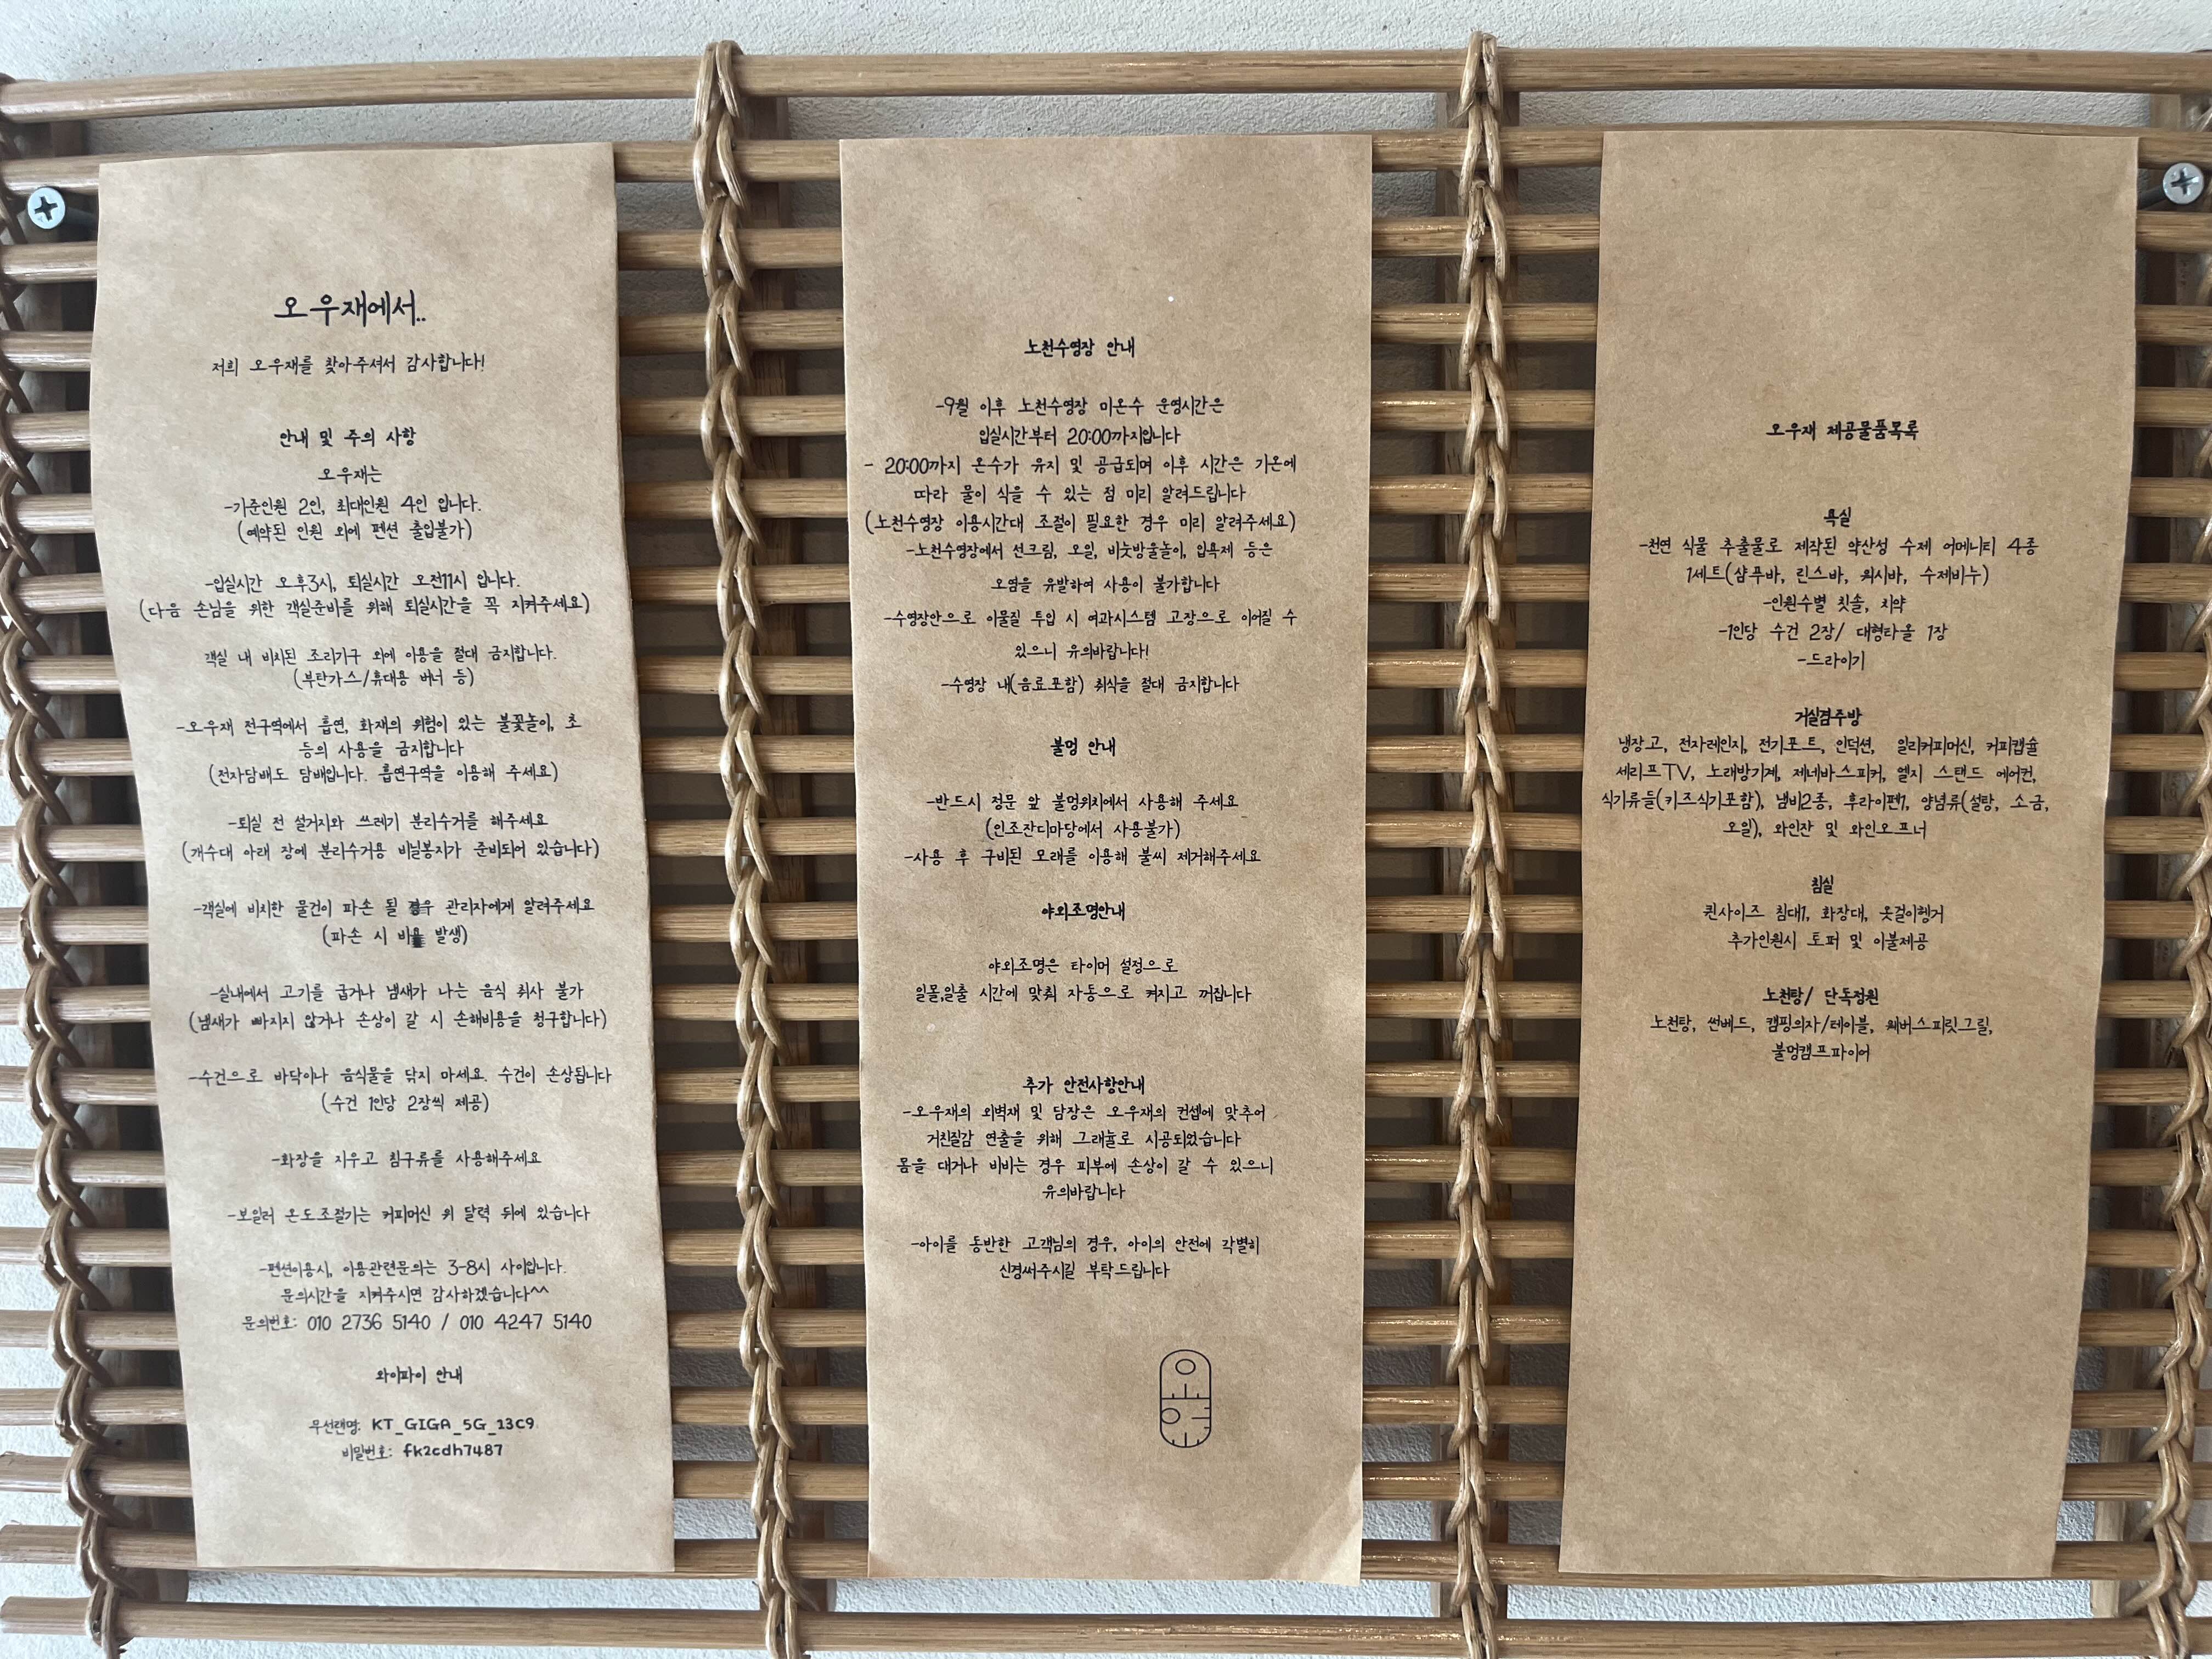 오우재에서..
저희 오우재를 찾아주셔서 감사합니다!
안내 및 주의 사항
오우재는
-기준인원 2인, 최대인원 4인 입니다.
(예약된 인원 외에 펜션 출입불가)
-입실시간 오후3시, 퇴실시간 오전11시 입니다.
(다음 손님을 위한 객실준비를 위해 퇴실시간을 꼭 지켜주세요)
객실 내 비치된 조리기구 외에 이용을 절대 금지합니다.
(부탄가스/휴대용 버너 등)
-오우재 전구역에서 흡연, 화재의 위험이 있는 불꽃놀이, 초
등의 사용을 금지합니다
(전자담배도 담배입니다. 흡연구역을 이용해 주세요)
-퇴실 전 설거지와 쓰레기 분리수거를 해주세요
(개수대 아래 장에 분리수거용 비닐봉지가 준비되어 있습니다)
-객실에 비치한 물건이 파손 될 경우 관리자에게 알려주세요
(파손 시 비용 발생)
-실내에서 고기를 굽거나 냄새가 나는 음식 취사 불가
(냄새가 빠지지 않거나 손상이 갈 시 손해비용을 청구합니다)
-수건으로 바닥이나 음식물을 닦지 마세요. 수건이 손상됩니다
(수건 1인당 2장씩 제공)
-화장을 지우고 침구류를 사용해주세요
-보일러 온도조절기는 커피머신 위 달력 뒤에 있습니다
-펜션이용시, 이용관련문의는 3-8시 사이입니다.
문의시간을 지켜주시면 감사하겠습니다^^
문의번호: 010 2736 5140 / 010 4247 5140
와이파이 안내
무선랜명: KT_GIGA_5G_13C9
비밀번호: fk2cdh7487
노천수영장 안내
-9월 이후 노천수영장 미온수 운영시간은
입실시간부터 20:00까지입니다
- 20:00까지 온수가 유지 및 공급되며 이후 시간은 기온에
따라 물이 식을 수 있는 점 미리 알려드립니다
(노천수영장 이용시간대 조절이 필요한 경우 미리 알려주세요)
-노천수영장에서 선크림, 오일, 비눗방울놀이, 입욕제 등은
오염을 유발하여 사용이 불가합니다
-수영장안으로 이물질 투입 시 여과시스템 고장으로 이어질 수
있으니 유의바랍니다!
-수영장 내(음료포함) 취식을 절대 금지합니다
불멍 안내
-반드시 정문 앞 불멍위치에서 사용해 주세요
(인조잔디마당에서 사용불가)
-사용 후 구비된 모래를 이용해 불씨 제거해주세요
야외조명안내
야외조명은 타이머 설정으로
일몰,일출 시간에 맞춰 자동으로 켜지고 꺼집니다
추가 안전사항안내
-오우재의 외벽재 및 담장은 오우재의 컨셉에 맞추어
거친질감 연출을 위해 그래뉼로 시공되었습니다
몸을 대거나 비비는 경우 피부에 손상이 갈 수 있으니
유의바랍니다
-아이를 동반한 고객님의 경우, 아이의 안전에 각별히
신경써주시길 부탁드립니다
오우재 제공물품목록
욕실
-천연 식물 추출물로 제작된 약산성 수제 어메니티 4종
1세트(샴푸바, 린스바, 워시바, 수제비누)
-인원수별 칫솔, 치약
-1인당 수건 2장/ 대형타올 1장
-드라이기
거실겸주방
냉장고, 전자레인지, 전기포트, 인덕션, 일리커피머신, 커피캡슐
세리프TV, 노래방기계, 제네바스피커, 엘지 스탠드 에어컨,
식기류들(키즈식기포함), 냄비2종, 후라이팬1, 양념류(설탕, 소금,
오일), 와인잔 및 와인오프너
침실
퀸사이즈 침대1, 화장대, 옷걸이헹거
추가인원시 토퍼 및 이불제공
노천탕/ 단독정원
노천탕, 썬베드, 캠핑의자/테이블, 웨버스피릿그릴,
불멍캠프파이어